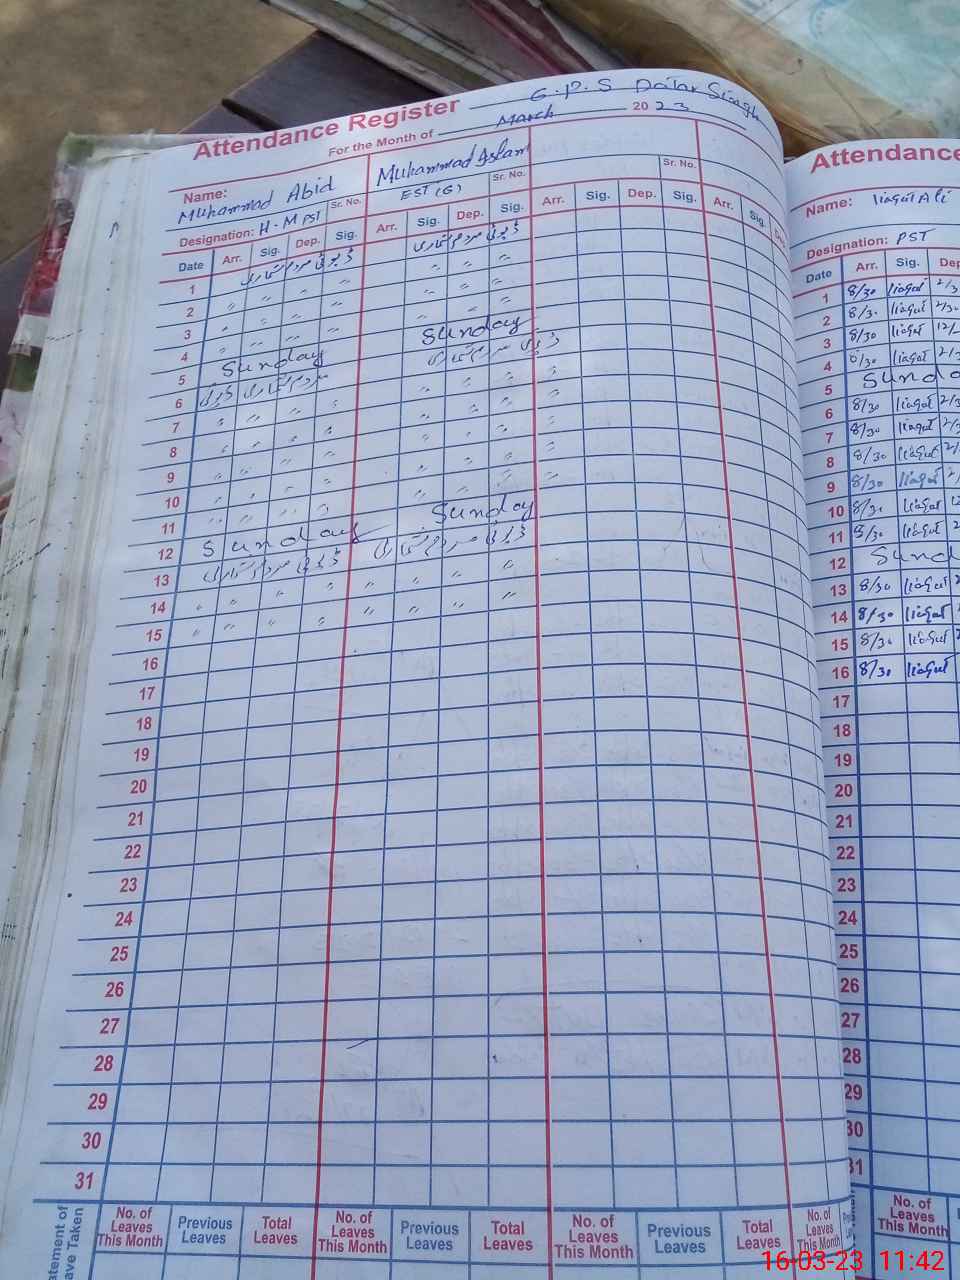 Attendance Register G.P.S Dollar Singh
For the Month of March 2023
Name: Muhammad Abid Sr. No. Muhammad Aslam Sr. No. Sr. No.
Designation: H.M PST EST (G)
Date Arr. Sig. Dep. Sig. Arr. Sig. Dep. Sig. Arr. Sig. Dep. Sig. Arr. Sig. Dep.
1 ڈیوٹی مردم شماری ڈیوٹی مردم شماری
2 " " " " " " "
3 " " " " " " "
4 " " " "
5 Sunday Sunday
6 ڈیوٹی مردم شماری ڈیوٹی مردم شماری
7 " " " " " " "
8 " " " " " " "
9 " " " " " " "
10 " " " " " " "
11 " " " "
12 Sunday Sunday
13 ڈیوٹی مردم شماری ڈیوٹی مردم شماری
14 " " " " " " " "
15 " " " " " " " "
16
17
18
19
20
21
22
23
24
25
26
27
28
29
30
31
No. of Leaves This Month Previous Leaves Total Leaves No. of Leaves This Month Previous Leaves Total Leaves No. of Leaves This Month Previous Leaves Total Leaves No. of Leaves This Month
Attendance
Name: liaqat Ali
Designation: PST
Date Arr. Sig. Dep
1 8/30 liaqat
2 8/30 liaqat
3 8/30 liaqat
4 8/30 liaqat
5 Sunda
6 8/30 liaqat
7 8/30 liaqat
8 8/30 liaqat
9 8/30 liaqat
10 8/30 liaqat
11 8/30 liaqat
12 Sund
13 8/30 liaqat
14 8/30 liaqat
15 8/30 liaqat
16 8/30 liaqat
17
18
19
20
21
22
23
24
25
26
27
28
29
30
31
No. of Leaves This Month
16-03-23 11:42